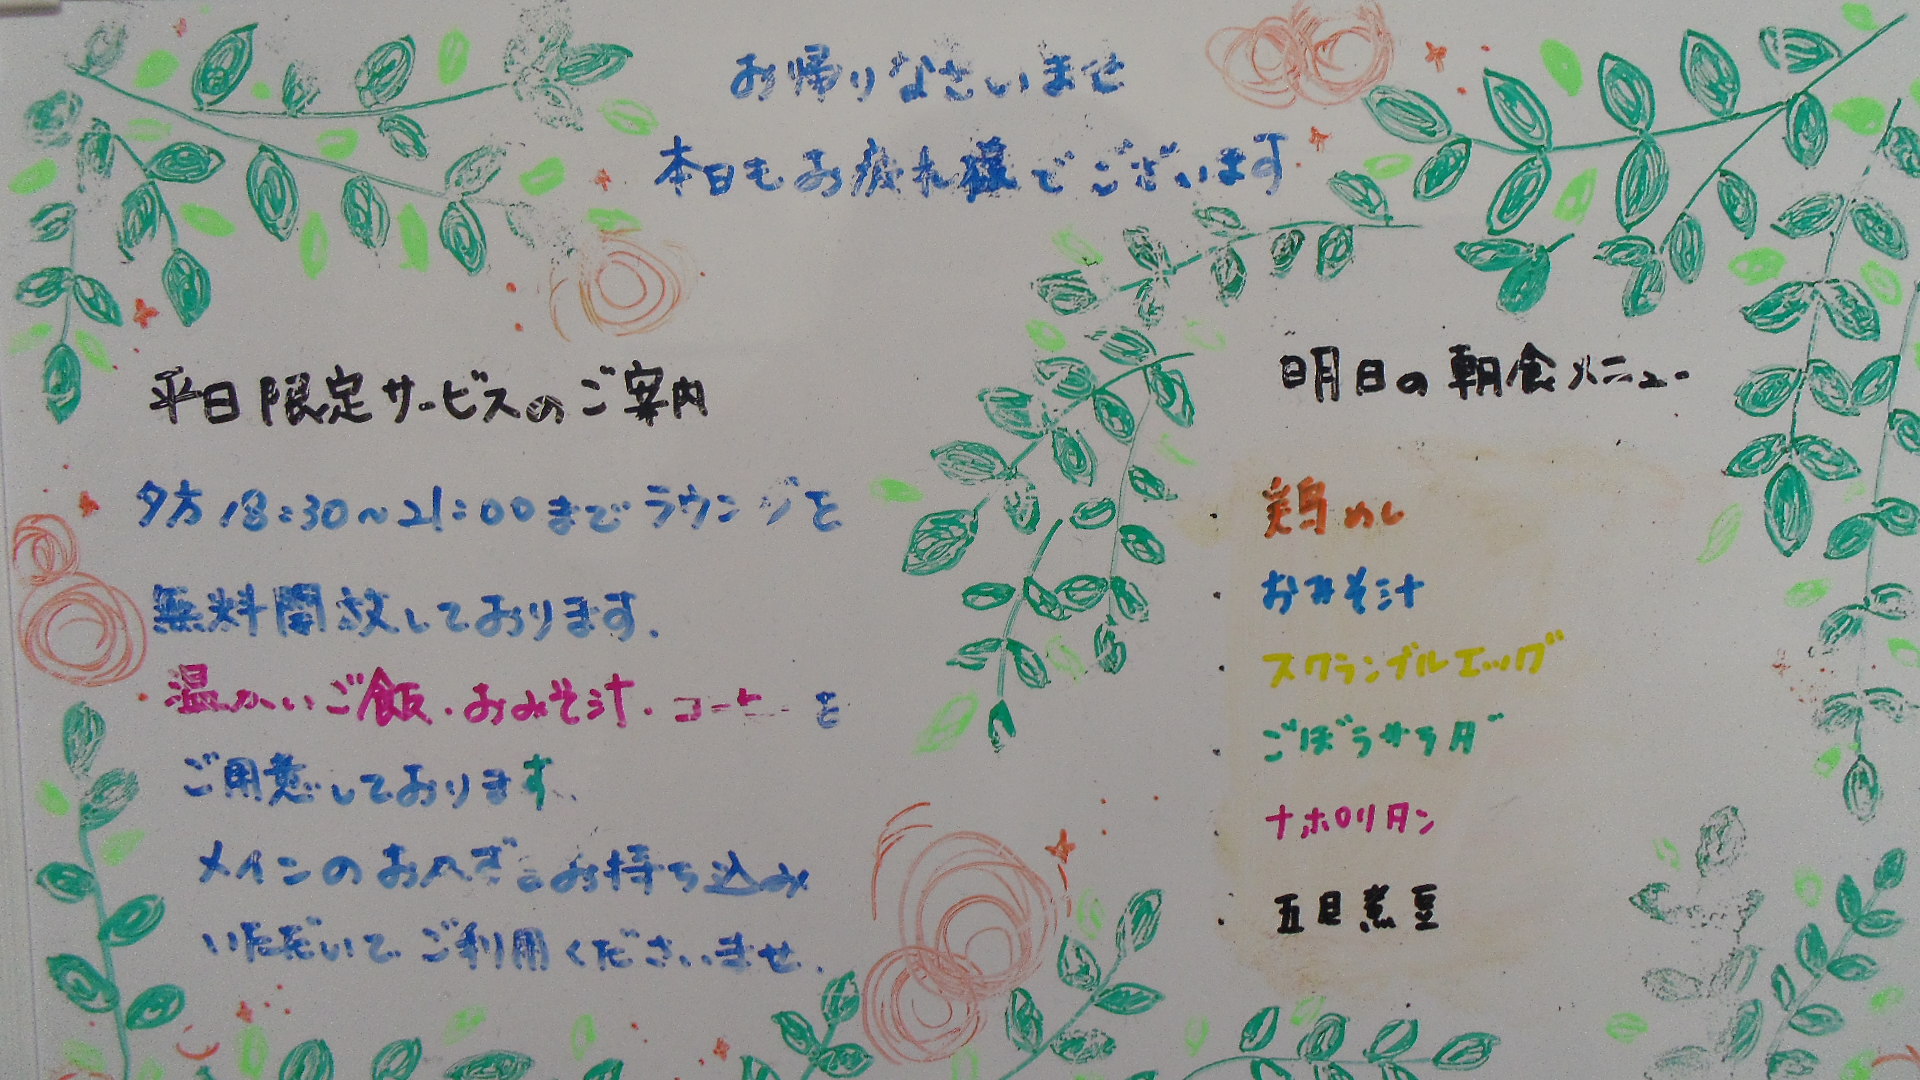 お帰りなさいませ
本日もお疲れ様でございます
平日限定サービスのご案内
夕方18:30~21:00までラウンジを
無料開放しております.
温かいご飯・おみそ汁・コーヒーを
ご用意しております.
メインのおかずをお持ち込み
いただいて ご利用くださいませ.
明日の朝食メニュー
・鶏めし
・おみそ汁
・スクランブルエッグ
・ごぼうサラダ
・ナポリタン
・五目煮豆